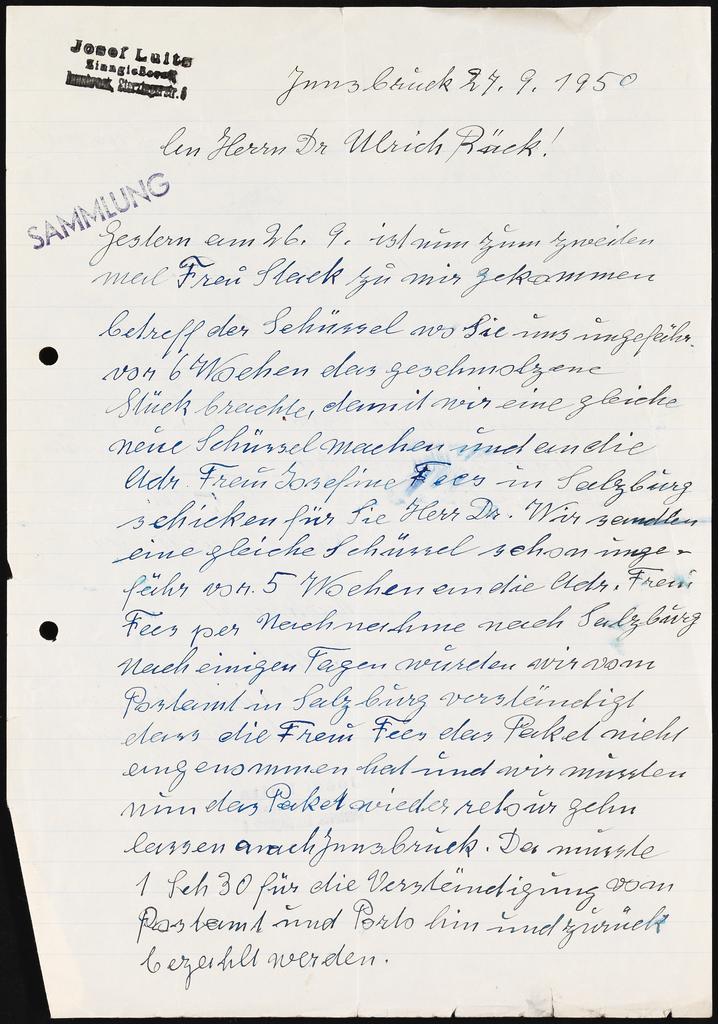 Josef Luitz
Zinngießerei
Innsbruck, Sterzingerstr. 6
Innsbruck 27. 9. 1950
An Herrn Dr Ulrich Rück!
SAMMLUNG
Gestern am 26. 9. ist nun zum zweiten
mal Frau Stack zu mir gekommen
betreff der Schüssel wo Sie uns ungefähr
vor 6 Wochen das geschmolzene
Stück brachte, damit wir eine gleiche
neue Schüssel machen und an die
Adr. Frau Josefine Fees in Salzburg
schicken für Sie Herr Dr. Wir sandten
eine gleiche Schüssel schon unge-
fähr vor 5 Wochen an die Adr. Frau
Fees per Nachnahme nach Salzburg
Nach einigen Tagen wurden wir vom
Postamt in Salzburg verständigt
dass die Frau Fees das Paket nicht
angenommen hat und wir mussten
nun das Paket wieder retour gehn
lassen nach Innsbruck. Da musste
1 Sch 30 für die Verständigung vom
Postamt und Porto hin und zurück
bezahlt werden.